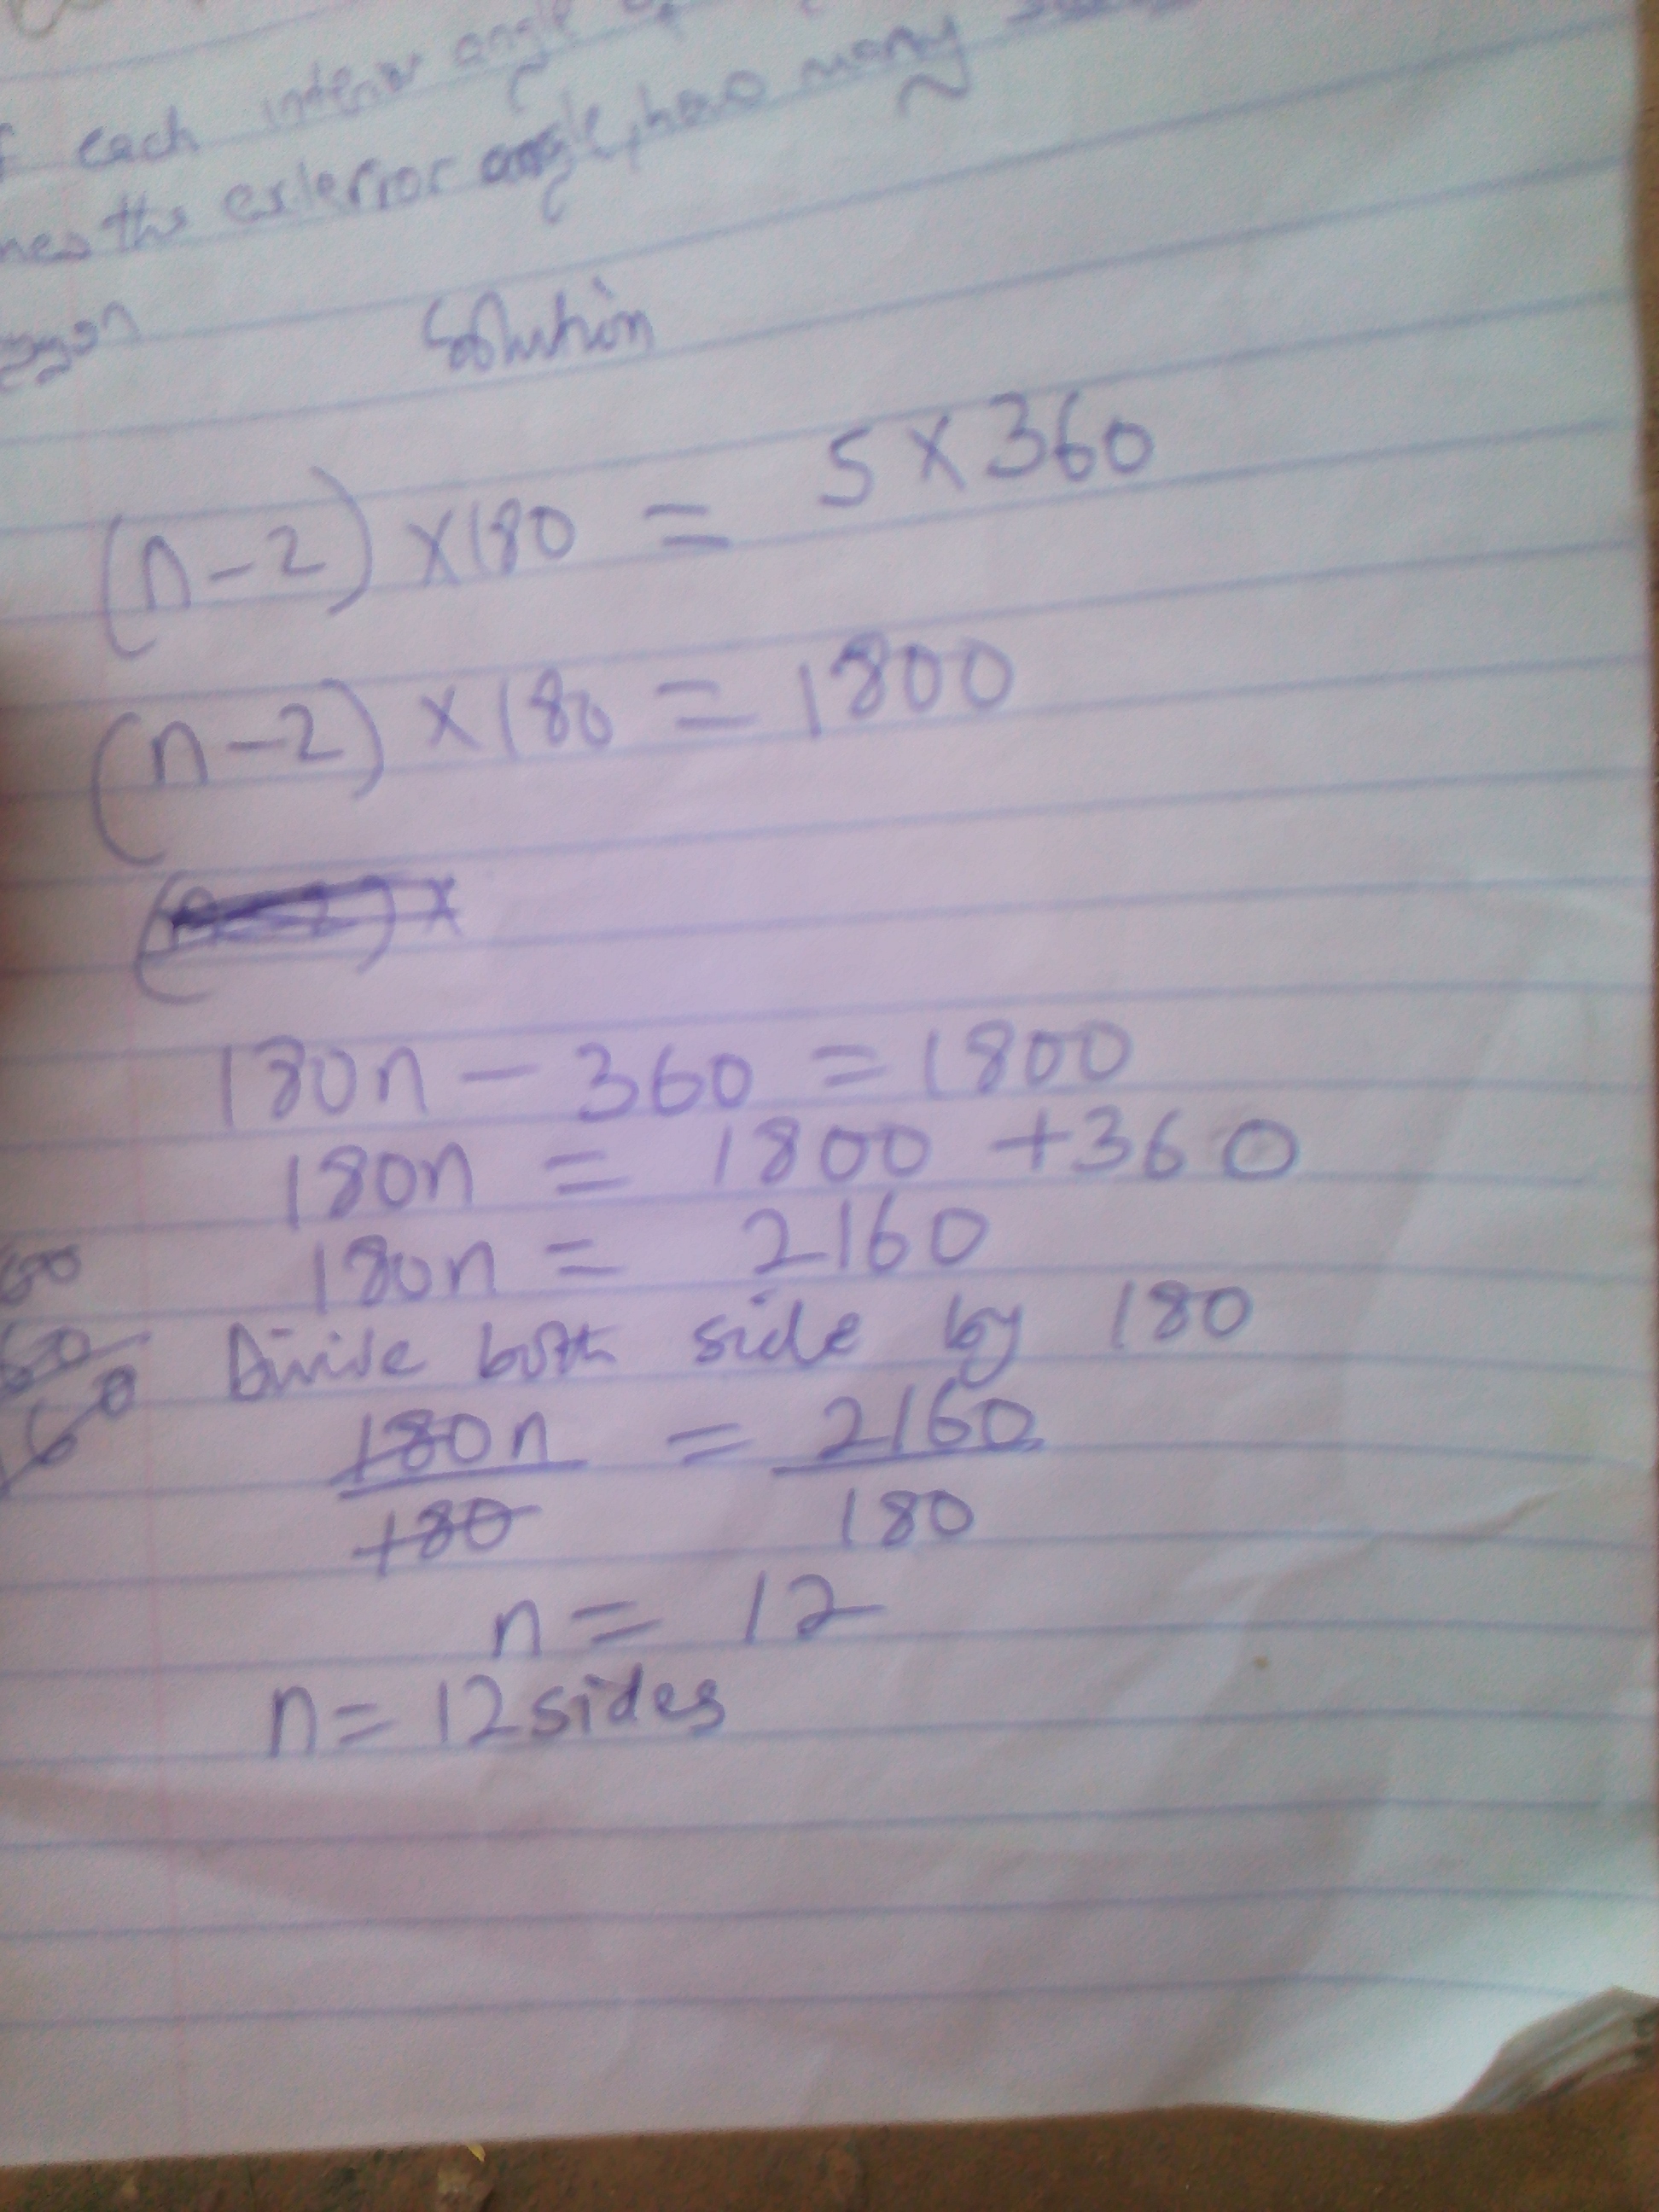 each interior angle
the exterior angle, how many
Solution
(n-2) ×180 = 5×360
(n-2) ×180 = 1800
180n - 360 = 1800
180n = 1800 +360
180n = 2160
Divide both side by 180
180n/180 = 2160/180
n = 12
n = 12 sides